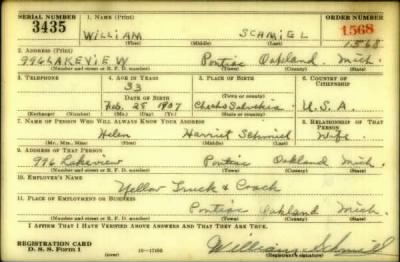 SERIAL NUMBER 1. NAME (Print) ORDER NUMBER
3435 WILLIAM SCHMIEL 1568
(First) (Middle) (Last) 1568
2. ADDRESS (Print)
996 LAKEVIEW Pontiac Oakland Mich.
(Number and street or R. F. D. number) (Town) (County) (State)
3. TELEPHONE 4. AGE IN YEARS 5. PLACE OF BIRTH 6. COUNTRY OF CITIZENSHIP
33
DATE OF BIRTH (Town or county)
Feb. 28 1907 U.S.A.
(Exchange) (Number) (Mo.) (Day) (Yr.) (State or country)
7. NAME OF PERSON WHO WILL ALWAYS KNOW YOUR ADDRESS 8. RELATIONSHIP OF THAT PERSON
Helen Harriet Schmiel Wife
(Mr., Mrs., Miss) (First) (Middle) (Last)
9. ADDRESS OF THAT PERSON
996 Lakeview Pontiac Oakland Mich.
(Number and street or R. F. D. number) (Town) (County) (State)
10. EMPLOYER'S NAME
Yellow Truck & Coach
11. PLACE OF EMPLOYMENT OR BUSINESS
Pontiac Oakland Mich.
(Number and street or R. F. D. number) (Town) (County) (State)
I AFFIRM THAT I HAVE VERIFIED ABOVE ANSWERS AND THAT THEY ARE TRUE.
REGISTRATION CARD
D. S. S. Form 1 16—17105 William Schmiel
(Registrant's signature)